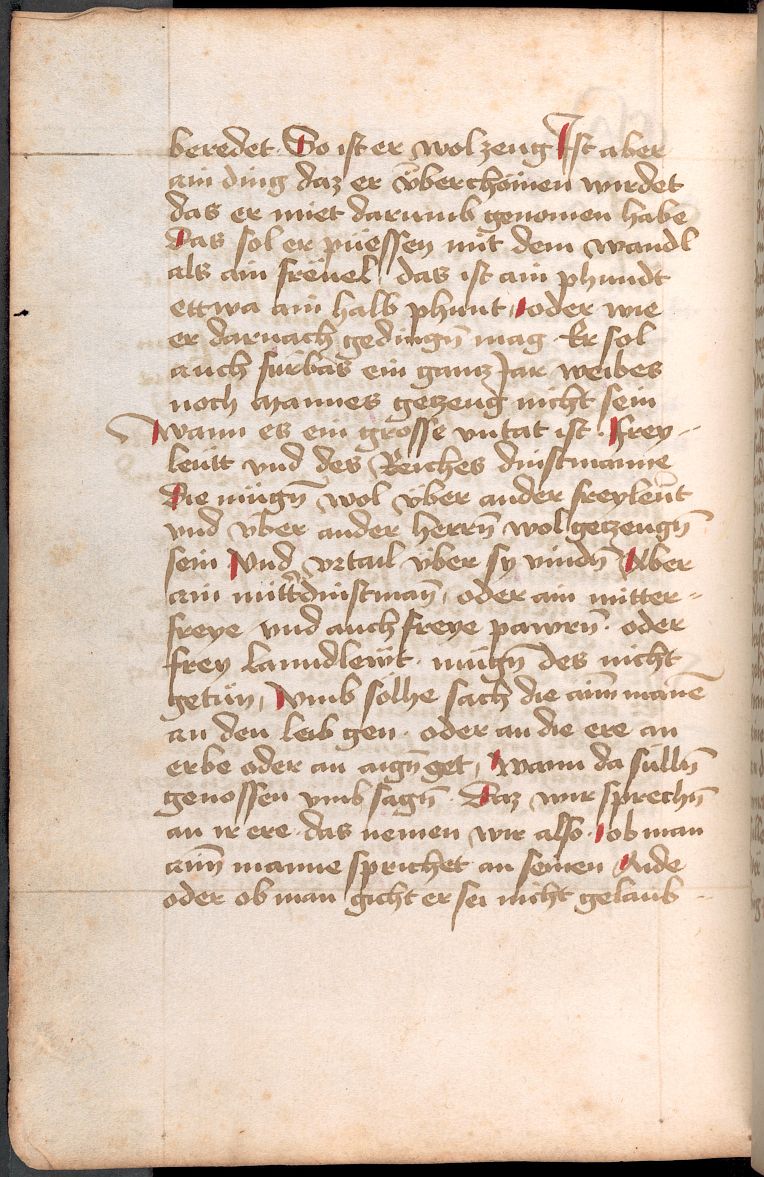 beredet · So ist er wol zeug Ist aber
ain ding daz er v̈berchömen wirdet
das er miet darumb genomen habe
Das sol er püessen mit dem wandl
als ain freuel / das ist ain phundt
ettwa ain halb phunt / oder wie
er darnach gedingn̄ mag · Er sol
auch fürbas ein ganz Jar weibes
noch mannes gezeug nicht sein
Wann es ein grosse vntat ist · Frey-
leütt vnd des Reiches dinstmanne
Die mügn̄ wol v̈ber ander freyleüt
vnd v̈ber ander herrn̄ wol getzeugn̄
sein Vnd vrtail v̈ber sy vindn̄ Aber
ain mitterdinstman̄ / oder ain mitter-
freye vnd auch freye pawrn̄ · oder
frey lanndlewt · mügn̄ des nicht
getün / Vmb solhe sach die aim manē
an den leib gen · oder an die ere an
erbe oder an aign̄ get / Wann da sulln̄
genossen vmb sagn̄ · Daz wir sprechn̄
an ir ere · das nemen wir also · ob man
aim manne sprichet an seinen Aide
oder ob man gicht er sei nicht gelaub-